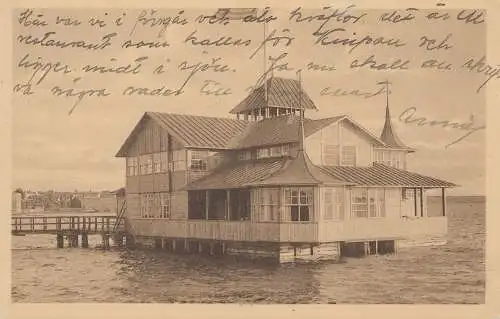 Här var vi i förrgår och åt kräftor, det är en
restaurant som kallas för Knipan och
ligger midt i sjön. Ja nu skall du
på några rader till
snart